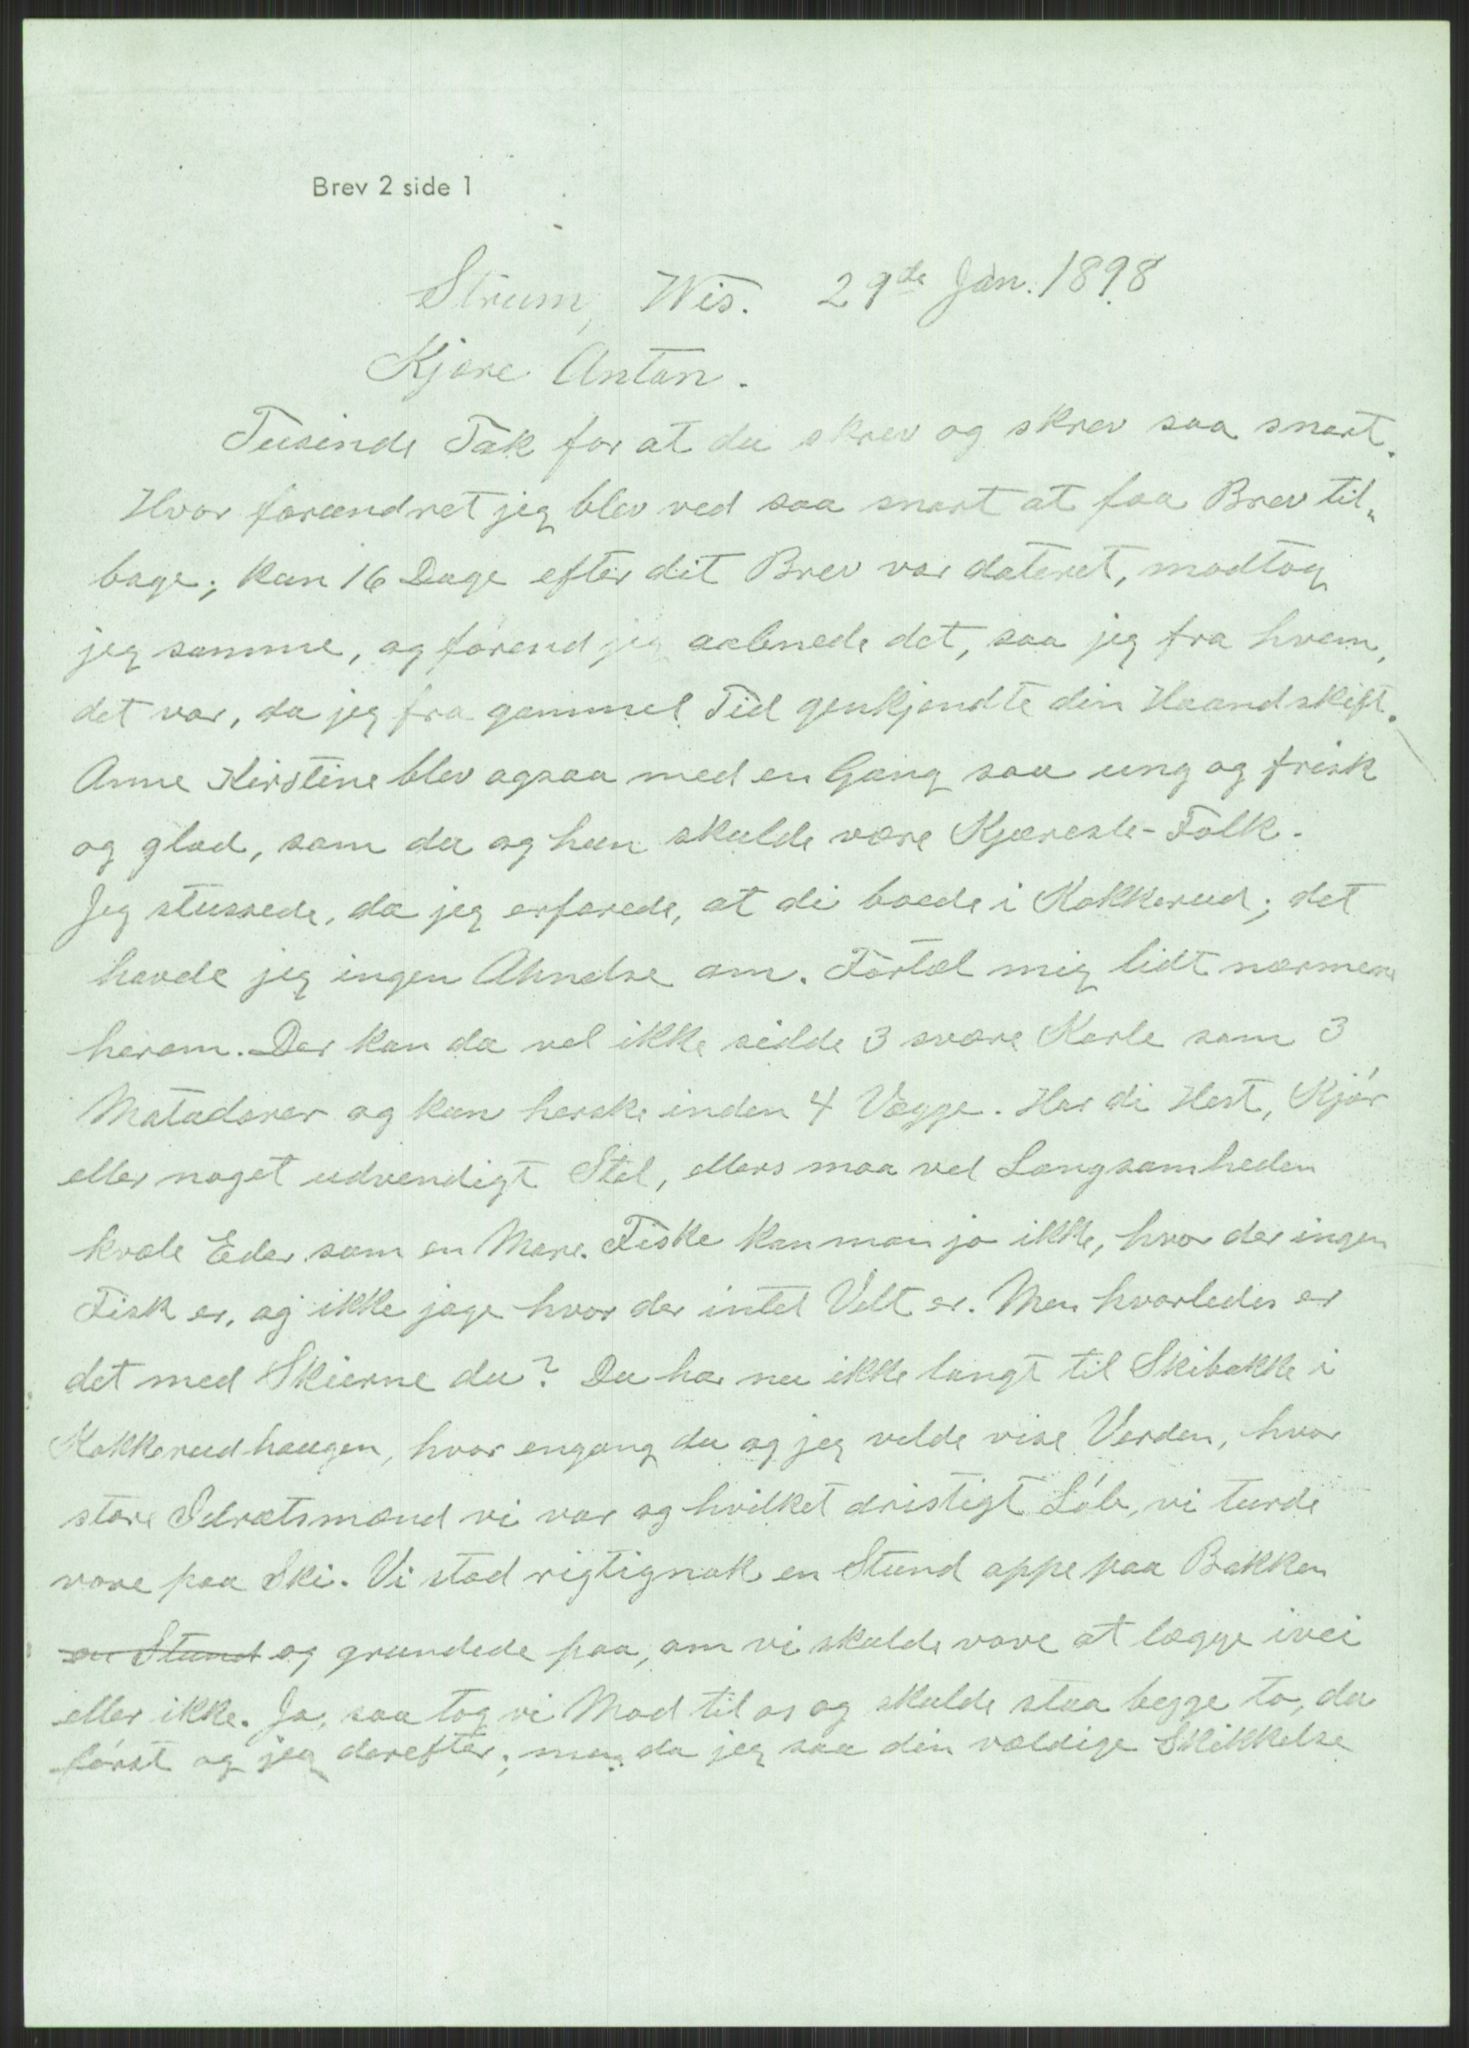 Brev 2 side 1
Strum, Wis. 29de Jan. 1898
Kjære Anton.
Tusinde Tak for at du skrev og skrev saa snart.
Hvor forændret jeg blev ved saa snart at faa Brev til„
bage; kun 16 Dage efter dit Brev var dateret, modtog
jeg samme, og førend jeg aabnede det, saa jeg fra hvem,
det var, da jeg fra gammel Tid genkjendte din Haandskift.
Anne Kirstine blev ogsaa med en Gang saa ung og frisk
og glad, som du og hun skulde være Kjæreste-Folk.
Jeg stussede, da jeg erfarede, at di boede i Kokkerud; det
havde jeg ingen Ahnelse om. Fortæl mig lidt nærmere
herom. Der kan da vel ikke sidde 3 svære Karle som 3
Matadorer og kun herske inden 4 Vægge. Har di Hest, Kjør
eller noget udvendigt Stel, ellers maa vel Langsamheden
kvæle Eder som en Mare. Fiske kan man jo ikke, hvor der ingen
Fisk er, og ikke jage hvor der intet Velt er. Men hvorledes er
det med Skierne du? Du har nu ikke langt til Skibakke i
Kokkerudhaugen, hvor engang du og jeg vilde vise Verden, hvor
store Idrætsmænd vi var og hvilket dristigt Løb, vi turde
vove paa Ski. Vi stod rigtignok en Stund oppe paa Bakken
en Stund og grundede paa, om vi skulde vove at lægge ivei
eller ikke. Ja, saa tog vi Mod til os og skulde staa begge to, du
først og jeg derefter; men da jeg saa din vældige Skikkelse